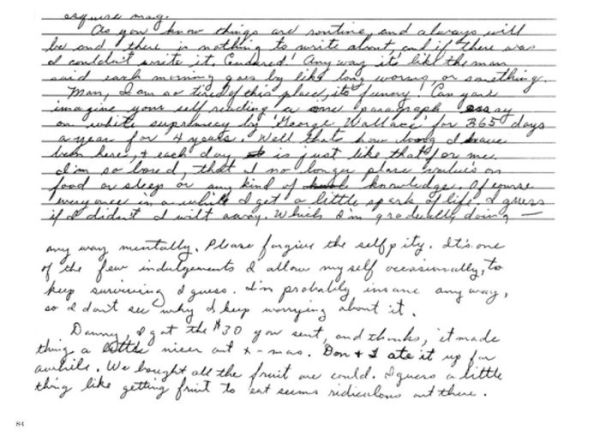 esquire mag.
As you know things are routine, and always will
be and there is nothing to write about, and if there was
I couldn't write it. Censored! Any way it's like the man
said each morning goes by like long worms, or something.
Man, I am so tired of this place, it's funny. Can you
imagine your self reading a one paragraph essay
on white supremacy by 'George Wallace' for 365 days
a year for 4 years. Well that how long I have
been here, & each day is just like that for me.
I'm so bored, that I no longer place value's on
food or sleep or any kind of knowledge. Of course
every once in a while I get a little spark of life, I guess
if I didn't I wilt away. Which I'm gradually doing —
any way mentally. Please forgive the self pity. It's one
of the few indulgements I allow myself occasionally, to
keep surviving I guess. I'm probably insane any way,
so I don't see why I keep worrying about it.
Danny, I got the $30 you sent, and thanks, it made
thing a little nicer out x-mas. Don & I ate it up for
awhile. We bought all the fruit we could. I guess a little
thing like getting fruit to eat seems ridiculous out there.
84